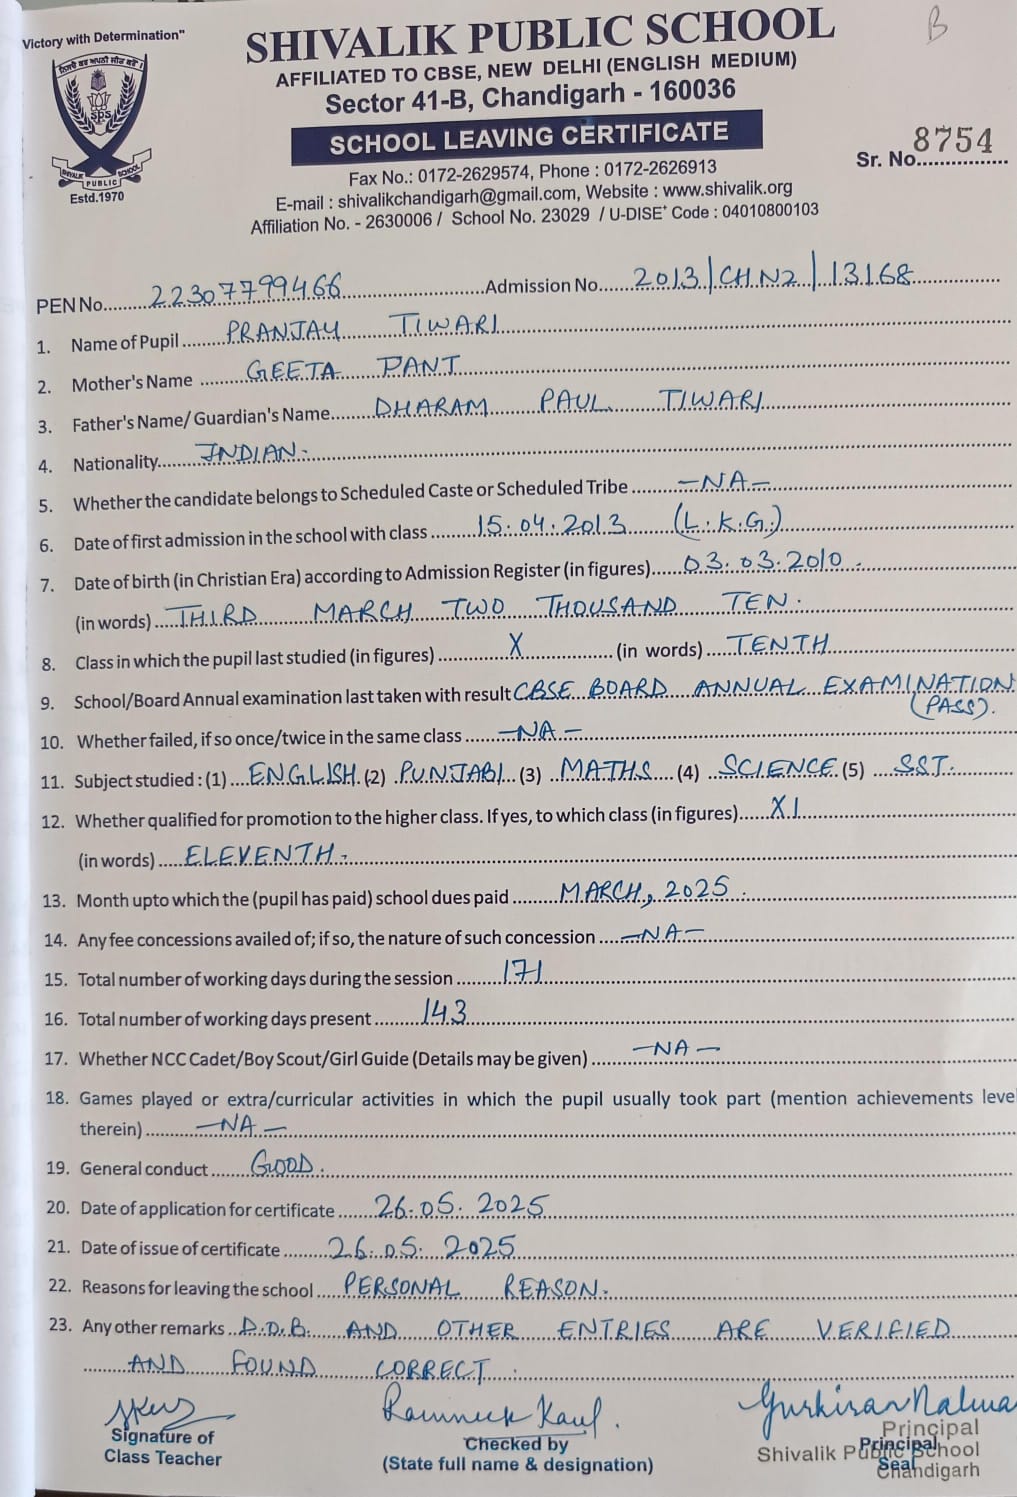 B
Victory with Determination"
SHIVALIK PUBLIC SCHOOL
AFFILIATED TO CBSE, NEW DELHI (ENGLISH MEDIUM)
Sector 41-B, Chandigarh - 160036
SCHOOL LEAVING CERTIFICATE
sps
SHIVALIK PUBLIC SCHOOL
Estd.1970
Sr. No. 8754
Fax No.: 0172-2629574, Phone : 0172-2626913
E-mail : shivalikchandigarh@gmail.com, Website : www.shivalik.org
Affiliation No. - 2630006 / School No. 23029 / U-DISE+ Code : 04010800103
PEN No. 22307799466 Admission No. 2013/CHN2/13168
1. Name of Pupil PRANJAY TIWARI
2. Mother's Name GEETA PANT
3. Father's Name/ Guardian's Name DHARAM PAUL TIWARI
4. Nationality INDIAN.
5. Whether the candidate belongs to Scheduled Caste or Scheduled Tribe -NA-
6. Date of first admission in the school with class 15.04.2013 (L.K.G.)
7. Date of birth (in Christian Era) according to Admission Register (in figures) 03.03.2010.
(in words) THIRD MARCH TWO THOUSAND TEN.
8. Class in which the pupil last studied (in figures) X (in words) TENTH
9. School/Board Annual examination last taken with result CBSE BOARD ANNUAL EXAMINATION
(PASS).
10. Whether failed, if so once/twice in the same class -NA-
11. Subject studied : (1) ENGLISH (2) PUNJABI (3) MATHS (4) SCIENCE (5) SST.
12. Whether qualified for promotion to the higher class. If yes, to which class (in figures) XI
(in words) ELEVENTH.
13. Month upto which the (pupil has paid) school dues paid MARCH, 2025.
14. Any fee concessions availed of; if so, the nature of such concession -NA-
15. Total number of working days during the session 171
16. Total number of working days present 143
17. Whether NCC Cadet/Boy Scout/Girl Guide (Details may be given) -NA-
18. Games played or extra/curricular activities in which the pupil usually took part (mention achievements leve
therein) -NA-
19. General conduct GOOD.
20. Date of application for certificate 26.05.2025
21. Date of issue of certificate 26.05.2025
22. Reasons for leaving the school PERSONAL REASON.
23. Any other remarks D.O.B. AND OTHER ENTRIES ARE VERIFIED
AND FOUND CORRECT.
Ramneek Kaul.
Gurkiran Nalwa
Signature of
Class Teacher
Checked by
(State full name & designation)
Principal
Seal
Principal
Shivalik Public School
Chandigarh